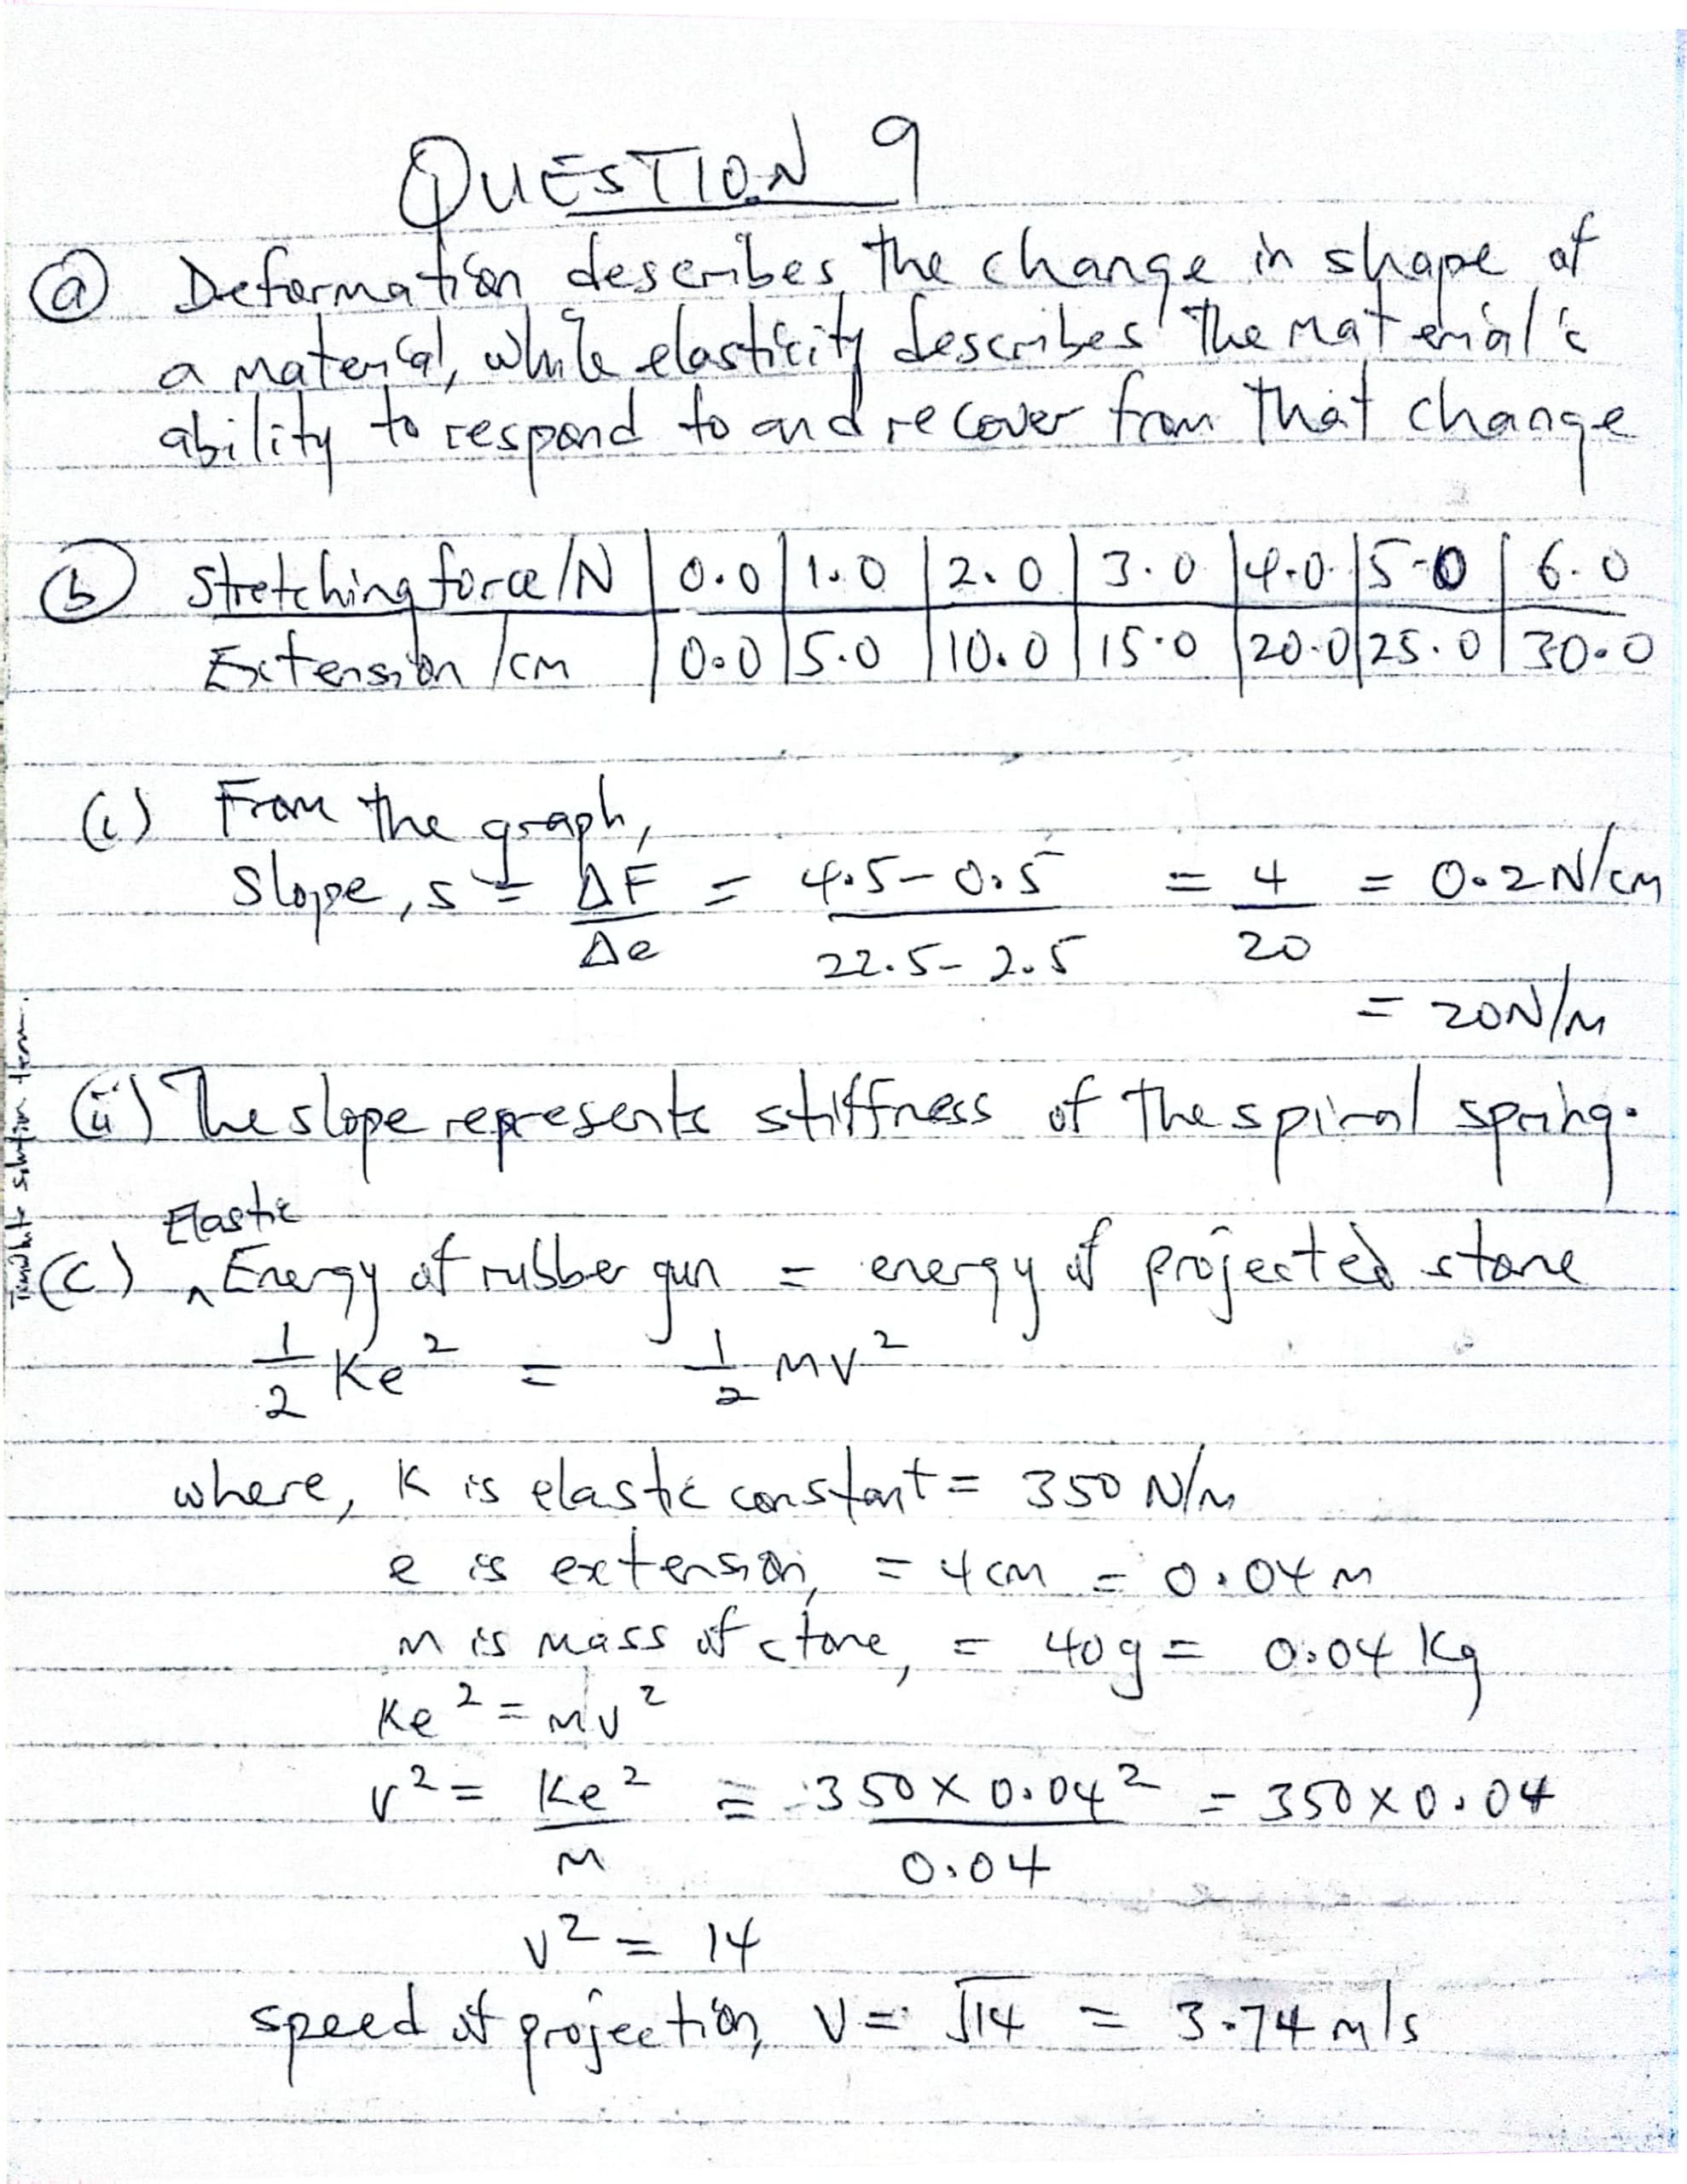 QUESTION 9
(a) Deformation describes the change in shape of
a material, while elasticity describes the material's
ability to respond to and recover from that change
(b) Stretching force/N | 0.0 | 1.0 | 2.0 | 3.0 | 4.0 | 5.0 | 6.0
Extension /cm | 0.0 | 5.0 | 10.0 | 15.0 | 20.0 | 25.0 | 30.0
(i) From the graph,
Slope, s = ΔF/Δe = (4.5 - 0.5)/(22.5 - 2.5) = 4/20 = 0.2 N/cm
= 20N/m
(ii) The slope represents stiffness of the spiral spring.
Elastic
(c) ^ Energy of rubber gun = energy of projected stone
1/2 Ke² = 1/2 mv²
where, K is elastic constant = 350 N/m
e is extension, = 4cm = 0.04m
m is mass of stone, = 40g = 0.04 Kg
Ke² = mv²
v² = Ke²/m = 350 × 0.04²/0.04 = 350 × 0.04
v² = 14
speed of projection, v = √14 = 3.74 m/s
solution team.